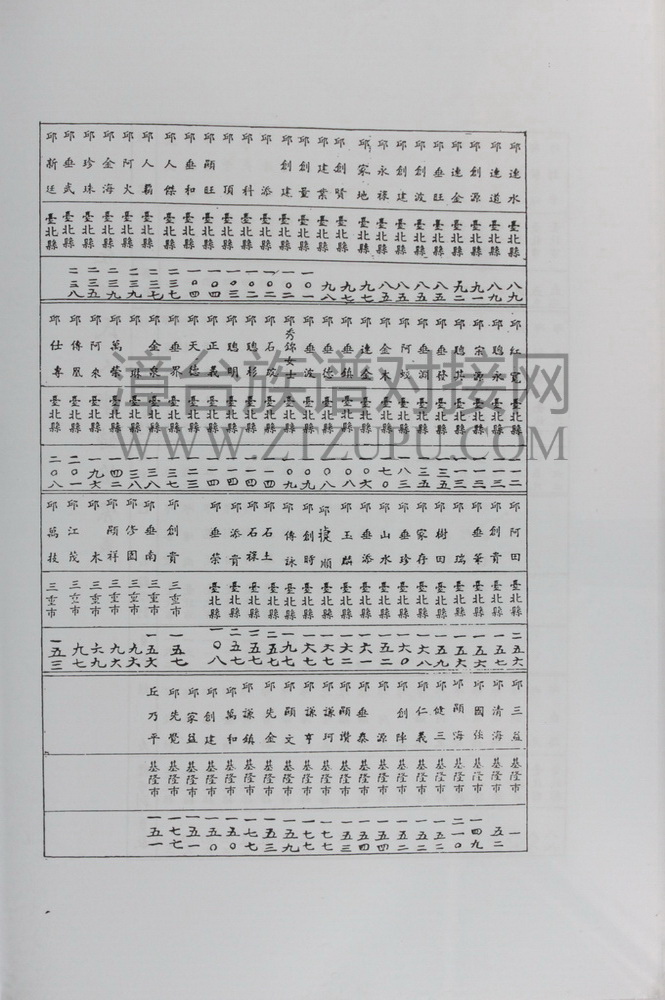 邱連水 臺北縣 八九
邱連道 臺北縣 八九
邱創源 臺北縣 九一
邱連金 臺北縣 九二
邱垂旺 臺北縣 八五
邱創波 臺北縣 八五
邱創建 臺北縣 八五
邱永祿 臺北縣 八五
邱家地 臺北縣 九七
邱創賢 臺北縣 九七
邱建業 臺北縣 九八
邱創量 臺北縣 一〇一
邱創建 臺北縣 一〇二
邱添 臺北縣 一〇二
邱科 臺北縣 一〇二
邱頂 臺北縣 一〇三
邱顯旺 臺北縣 一〇四
邱垂和 臺北縣 一〇四
邱人傑 臺北縣 二三七
邱人霸 臺北縣 二三七
邱阿火 臺北縣 二三九
邱金海 臺北縣 二三九
邱珍珠 臺北縣 二三五
邱垂武 臺北縣 二三八
邱新廷 臺北縣
邱紅寬 臺北縣 一二
邱聰永 臺北縣 一三
邱宋源 臺北縣 一三
邱聰 臺北縣 一三
邱垂發 臺北縣 三五
邱垂淵 臺北縣 三五
邱阿 臺北縣 八三
邱金木 臺北縣 七〇
邱連金 臺北縣 一〇六
邱垂鎮 臺北縣 一〇八
邱垂德 臺北縣 一〇八
邱垂波 臺北縣 一〇九
邱秀錦女士 臺北縣 一〇九
邱石 臺北縣
邱聰杉 臺北縣 一四
邱聰明 臺北縣 一四
邱正義 臺北縣 一四
邱天德 臺北縣 二三
邱垂界 臺北縣 三七
邱金泉 臺北縣 三八
邱 臺北縣 三八
邱萬榮 臺北縣 一四二
邱阿泉 臺北縣 一九六
邱傳風 臺北縣 二〇一
邱仕專 臺北縣 二〇八
邱阿田 臺北縣 二五六
邱創貴 臺北縣 一五七
邱垂筆 臺北縣 一五六
邱瑞 臺北縣 一五六
邱樹田 臺北縣 一五六
邱家存 臺北縣 一六八
邱垂珍 臺北縣 一六〇
邱山水 臺北縣 一五二
邱垂添 臺北縣 一六二
邱玉麟 臺北縣 一六一
邱順 臺北縣 一六七
邱創時 臺北縣 一六七
邱傳詠 臺北縣 一九七
邱石土 臺北縣 二五七
邱石祿 臺北縣 二五七
邱添貴 臺北縣 二五七
邱垂榮 臺北縣 一〇八
邱創貴 三重市 一五七
邱垂南 三重市 一五六
邱修園 三重市 九六
邱顯祥 三重市 九六
邱木 三重市 六九
邱江茂 三重市 九七
邱萬枝 三重市 一五三
邱三益 基隆市 一
邱清海 基隆市 五二
邱國強 基隆市 一四九
邱顯海 基隆市 二一〇
邱健三 基隆市 一五二
邱仁義 基隆市 一五二
邱創陣 基隆市 一五二
邱源 基隆市 一五四
邱垂泰 基隆市 一五四
邱顯讚 基隆市 一五三
邱謙珂 基隆市 一七七
邱謙亨 基隆市 一七七
邱顯文 基隆市 一五九
邱先金 基隆市 一五三
邱謙鎮 基隆市 一七七
邱萬和 基隆市 一五〇
邱創建 基隆市 一五〇
邱家益 基隆市 一五一
邱先覺 基隆市 一七七
丘乃平 基隆市 一五一
漳台族谱对接网
WWW.ZTZUPU.COM